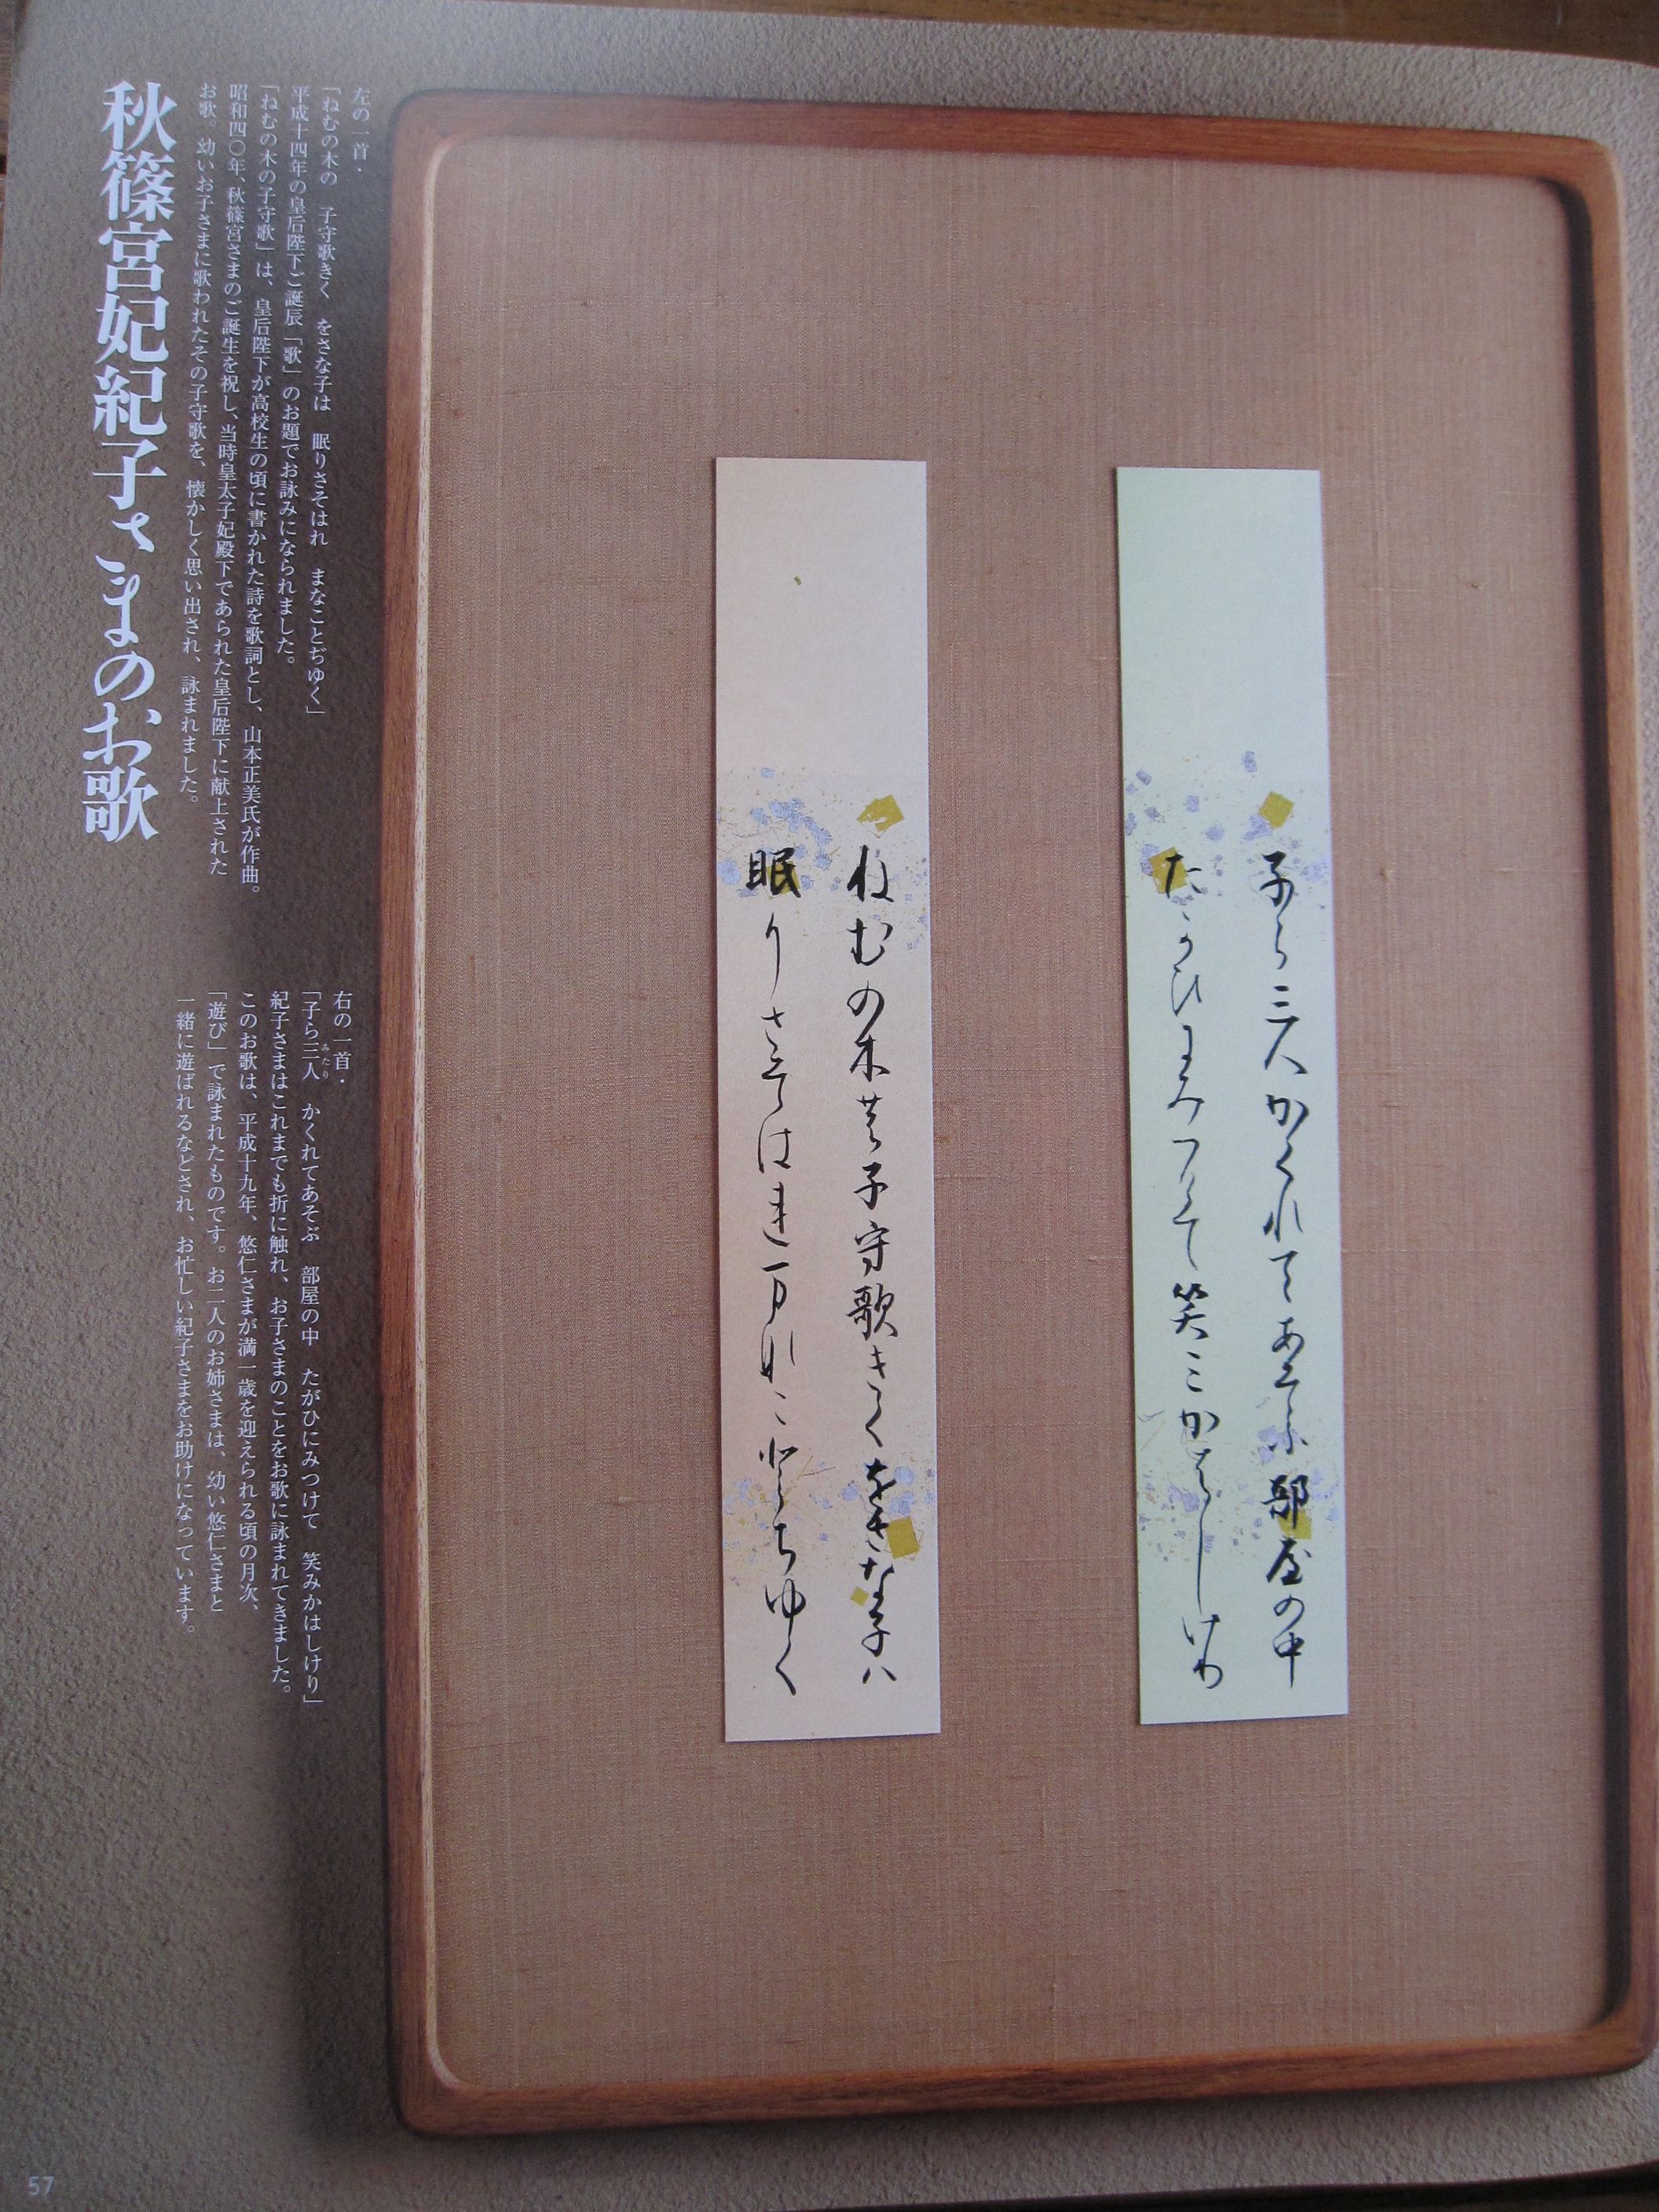 子ら三人かくれてあそふ部屋の中
たかひにみつけて笑ミかはしけり
ねむの木の子守歌きくをさな子ハ
眠りさそはれまなことちゆく
左の一首・
「ねむの木の 子守歌きく をさな子は 眠りさそはれ まなことぢゆく」
平成十四年の皇后陛下ご誕辰「歌」のお題でお詠みになられました。
「ねむの木の子守歌」は、皇后陛下が高校生の頃に書かれた詩を歌詞とし、山本正美氏が作曲。
昭和四〇年、秋篠宮さまのご誕生を祝し、当時皇太子妃殿下であられた皇后陛下に献上された
お歌。幼いお子さまに歌われたその子守歌を、懐かしく思い出され、詠まれました。
右の一首・
「子ら三人 かくれてあそぶ 部屋の中 たがひにみつけて 笑みかはしけり」
みたり
紀子さまはこれまでも折に触れ、お子さまのことをお歌に詠まれてきました。
このお歌は、平成十九年、悠仁さまが満一歳を迎えられる頃の月次、
「遊び」で詠まれたものです。お二人のお姉さまは、幼い悠仁さまと
一緒に遊ばれるなどされ、お忙しい紀子さまをお助けになっています。
秋篠宮妃紀子さまのお歌
57